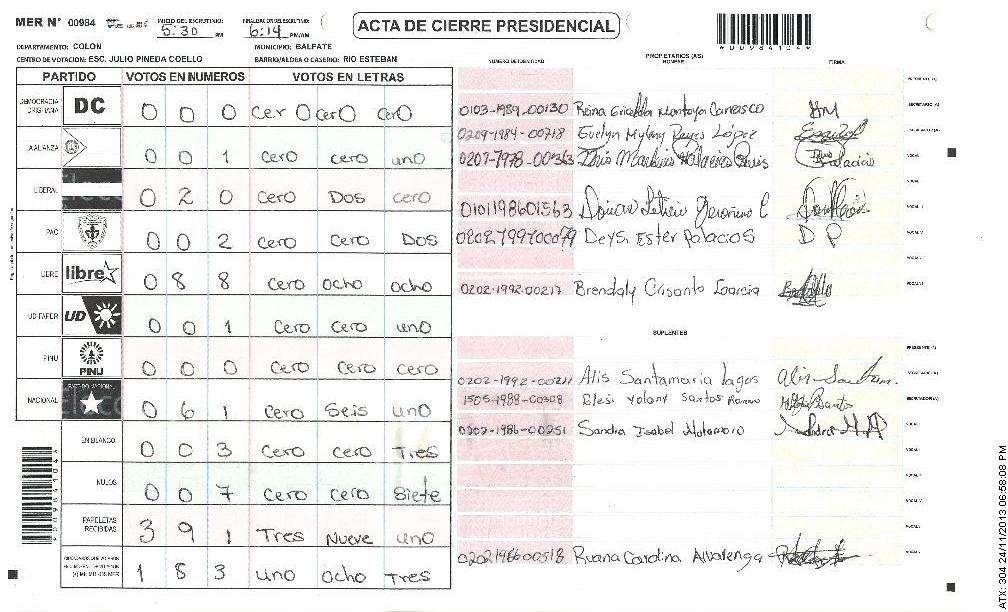 MER N° 00984
INICIO DEL ESCRUTINIO:
5:30 PM
FINALIZACION DEL ESCRUTINIO:
6:14 PM/AM
ACTA DE CIERRE PRESIDENCIAL
DEPARTAMENTO: COLON
MUNICIPIO: BALFATE
CENTRO DE VOTACION: ESC. JULIO PINEDA COELLO
BARRIO/ALDEA O CASERIO: RIO ESTEBAN
PARTIDO VOTOS EN NUMEROS VOTOS EN LETRAS
DEMOCRACIA CRISTIANA DC 0 0 0 cero cero cero
LA ALIANZA 0 0 1 cero cero uno
LIBERAL 0 2 0 cero Dos cero
PAC 0 0 2 cero cero Dos
LIBRE libre 0 8 8 cero ocho ocho
UD-FAPER UD 0 0 1 cero cero uno
PINU PINU 0 0 0 cero cero cero
NACIONAL 0 6 1 cero Seis uno
EN BLANCO 0 0 3 cero cero Tres
NULOS 0 0 7 cero cero Siete
PAPELETAS RECIBIDAS 3 9 1 Tres Nueve uno
1 8 3 uno ocho Tres
NUMERO DE IDENTIDAD
PROPIETARIOS (AS)
NOMBRE
FIRMA
PRESIDENTE (A)
0103-1989-00130 Reina Griselda Montoya Carrasco SECRETARIO (A)
0209-1984-00718 Evelyn Mylany Reyes López
VOCAL I
0101198601563
Deysi Ester Palacios D P
0202-1992-00217 Brendaly Crisanto Garcia
SUPLENTES
PRESIDENTE (A)
0202-1992-00211 Alis Santamaria Lagos SECRETARIO (A)
1505-1988-00308
0202-1986-00251 Sandra Isabel Matamoro
0202198600518 Ruana Carolina Alvarenga
ATX: 304 24/11/2013 06:58:08 PM